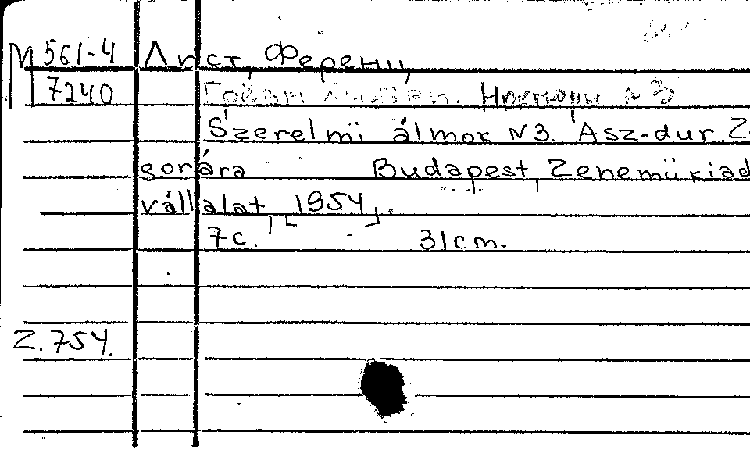 М 561-4 Лист, Ференц
7240
Szerelmi álmok N3. Asz-dur Z
gorára Budapest, Zenemükiad
vállalat, [1954].
7с. 31cm.
Z.754.